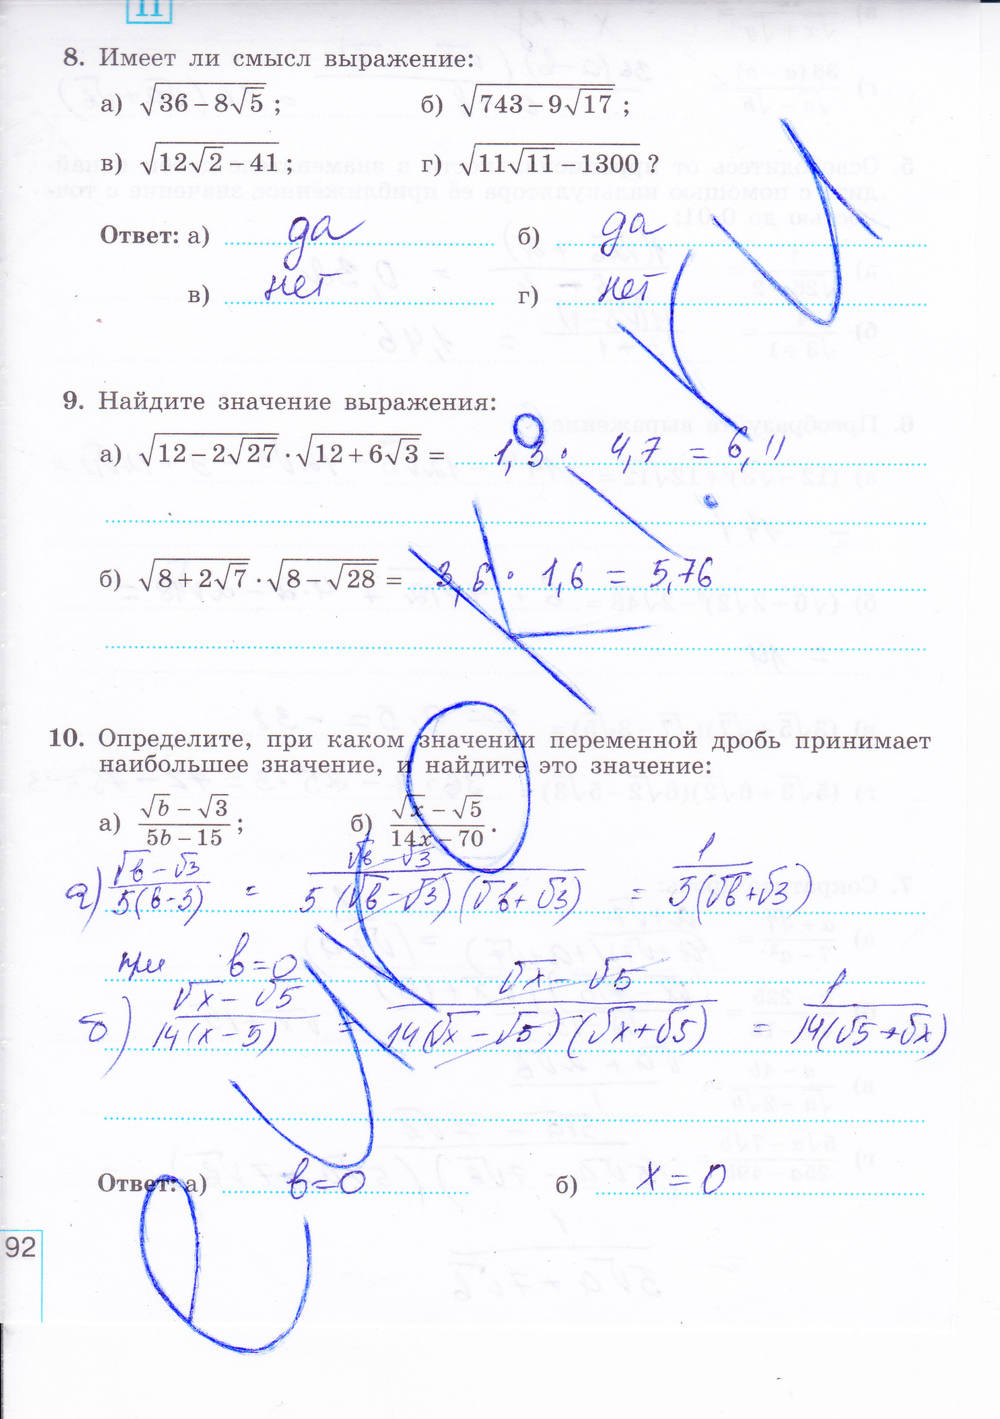 11
8. Имеет ли смысл выражение:
а) √(36 − 8√5) ; б) √(743 − 9√17) ;
в) √(12√2 − 41) ; г) √(11√11 − 1300) ?
Ответ: а) да б) да
в) нет г) нет
9. Найдите значение выражения:
а) √(12 − 2√27) · √(12 + 6√3) = 1,3 · 4,7 = 6,11
б) √(8 + 2√7) · √(8 − √28) = 3,6 · 1,6 = 5,76
10. Определите, при каком значении переменной дробь принимает
наибольшее значение, и найдите это значение:
а) (√b − √3)/(5b − 15) ; б) (√x − √5)/(14x − 70) .
а) (√в − √3)/(5(в − 3)) = (√в − √3)/(5(√в − √3)(√в + √3)) = 1/(5(√в + √3))
при в = 0
б) (√x − √5)/(14(x − 5)) = (√x − √5)/(14(√x − √5)(√x + √5)) = 1/(14(√5 + √x))
Ответ: а) в = 0 б) x = 0
92
eurokki.ru